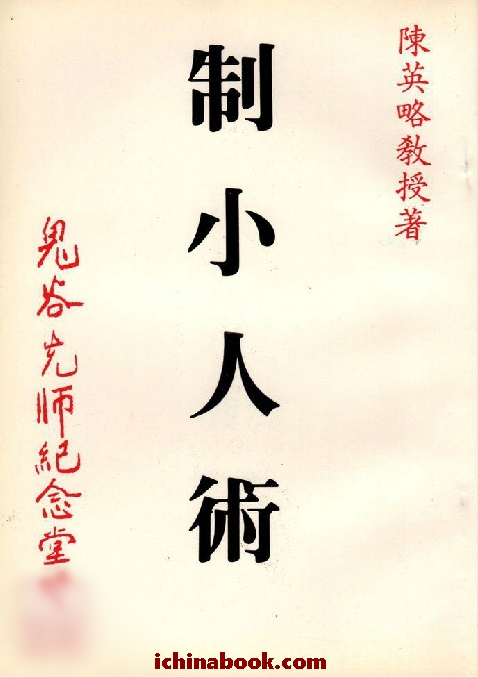 陳英略敎授著
制小人術
鬼谷先師紀念堂
ichinabook.com